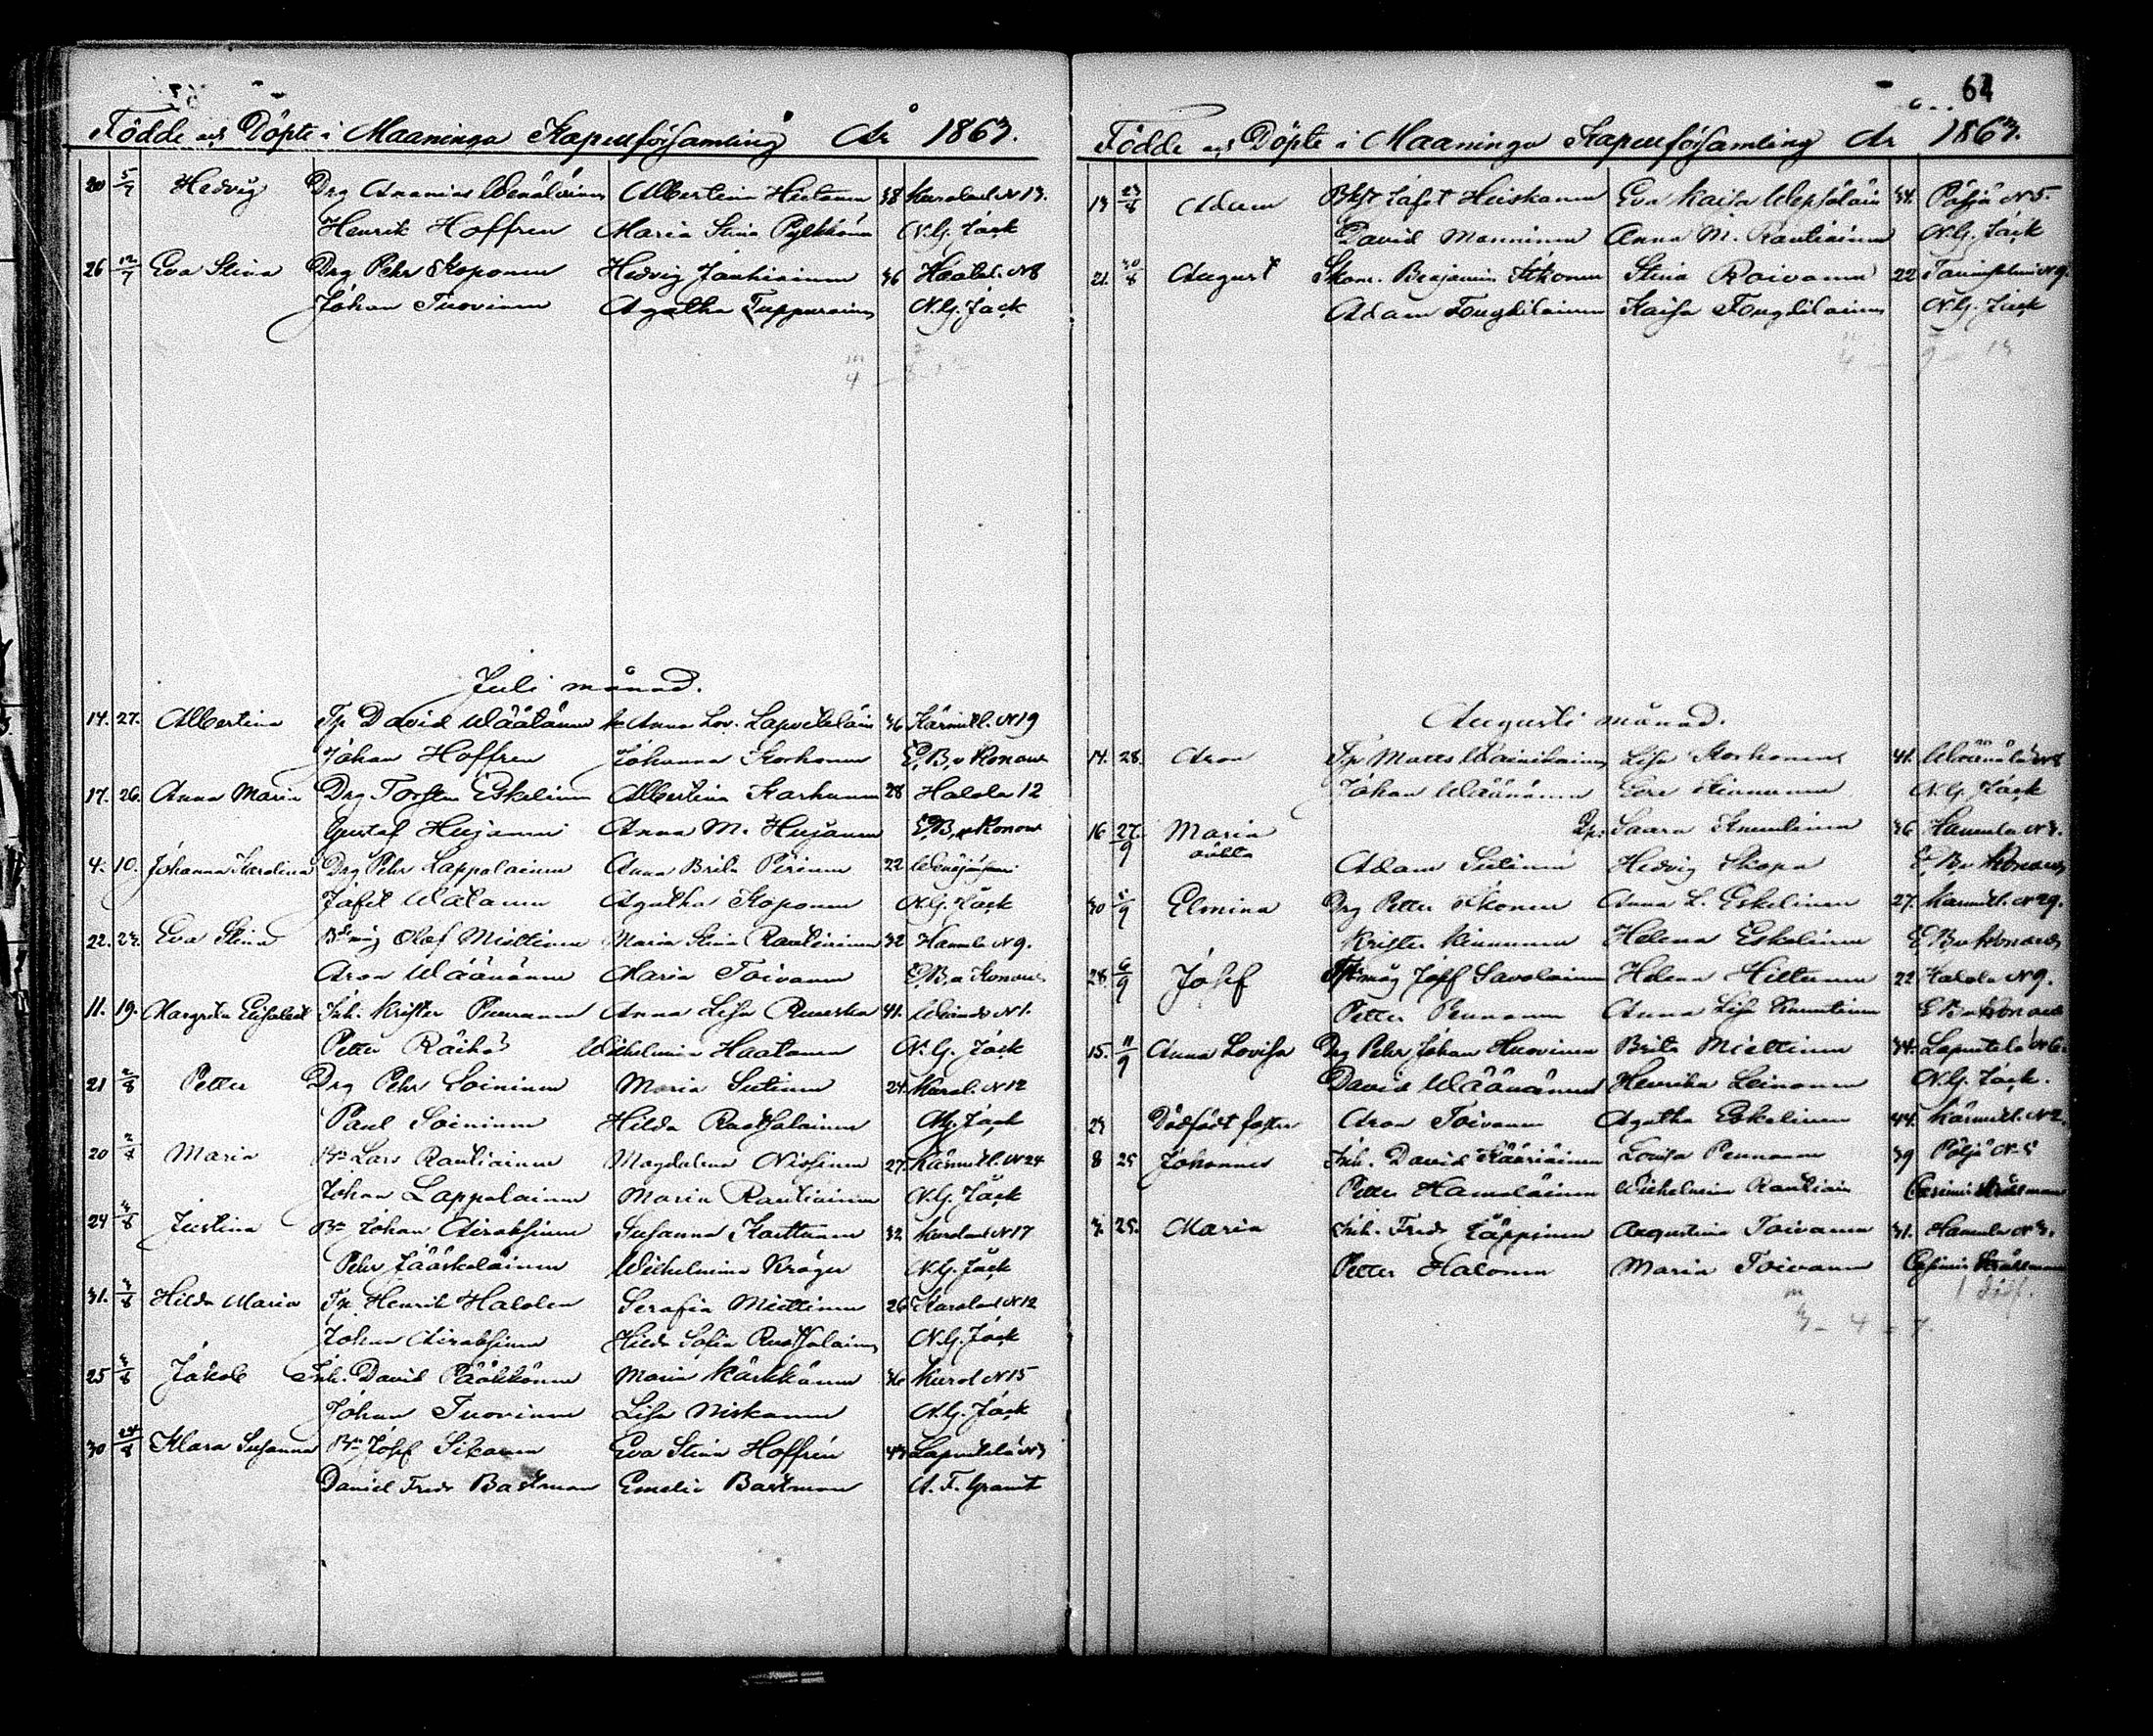 Födde och Döpte i Maaninga Kapellförsamling År 1863.
20 5/7 Hedvig Drg Ananias Wenäläinen Albertina Hietanen 38 Kurolanl N 13.
Henrik Hoffren Maria Stina Pylkkönen N.G. Jack
26 12/7 Eva Stina Drg Pehr Koponen Hedvig Jantiainen 36 Haatal. N 8
Johan Tuovinen Agatha Tuppurainen N.G. Jack
Juli månad.
14. 27. Albertina Tp David Wäätänen Anna Lov. Lapvetelain 36 Kärnakl. N 19
Johan Hoffren Johanna Korhonen E.B.v Konow
17. 26. Anna Maria Drg Torsten Eskelinen Albertina Karhunen 28 Halola 12
Gustaf Hujanen Anna M. Hujanen E.B.v Konow
4. 10. Johanna Karolina Drg Pehr Lappalainen Anna Brita Pirinen 22
Jafet Watanen Agatha Koponen N.G. Jack
22. 27. Eva Stina Olof Miettinen Maria Stina Rautiainen 32 Hamula N 9.
Aron Wäänänen Maria Toivanen E.B.v Konow
11. 19. Margreta Elisabet Inh. Krister Anna Lisa 41. N 1.
Petter Räihä Wilhelmina Haatanen N.G. Jack
21 2/8 Petter Drg Pehr Soininen Maria Sutinen 24. Kurol. N 12
Paul Soininen Hilda Ruotsalainen N.G. Jack
20 2/8 Maria Bn Lars Rautiainen Magdalena Nissinen 27. Kärnakl. N 24
Johan Lappalainen Maria Rautiainen N.G. Jack
24 3/8 Justina Bn Johan Airaksinen Susanna Karttunen 32 Kurolanl N 17
Pehr Jääskeläinen Wilhelmina Kröger N.G. Jack
31. 3/8 Hilda Maria Tp. Henrik Halolen Serafia Miettinen 26 Kurolanl N 12
Johan Airaksinen Hilda Sofia Ruotsalainen N.G. Jack
25 3/8 Jakob Inh. David Pääkkönen Maria Kärkkänen 36 Kurol N 15
Johan Tuovinen Lisa Niskanen N.G. Jack
30 24/8 Klara Susanna Bn Josef Sikanen Eva Stina Hoffrén 43 Lapvetelä N 3
Daniel Fredr Bastman Emelie Bastman A.F. Granit
64
Födde och Döpte i Maaninga Kapellförsamling År 1863.
13 23/8 Adam Jafet Heiskanen Eva Kaisa Wepsäläin 34. Pöljä N 5.
David Manninen Anna M. Rautiainen N.G. Jack
21. 30/8 August Benjamin Itkonen Stina Roivanen 22 N 9.
Adam Tougdilainen Kaisa Tougdilainen N.G. Jack
Augusti månad.
14. 28. Aron Tp Matts Wainikainen Lisa Korhonen 41. N 8
Johan Wäänänen Kinnunen N.G. Jack
16 27/9 Maria Pp: Saara Knuutinen 36 Hamula N 3.
oäkta Adam Sutinen Hedvig Skopa E.B.v Konow
30 5/9 Elmina Drg Petter Itkonen Anna L. Eskelinen 27. Kärnakl. N 29.
Krister Kinnunen Helena Eskelinen E.B.v Konow
28. 6/9 Josef måg Josef Savolainen Helena Hiltunen 22 Halola N 9.
Petter Pennanen Anna Lisa Knuutinen E.B.v Konow
15. 11/9 Anna Lovisa Drg Pehr Johan Huovinen Brita Miettinen 34. Lapvetelä N 6.
David Wäänänen Henrika Leinonen N.G. Jack.
23 Dödfödt foster Aron Toivanen Agatha Eskelinen 44. Kärnakl. N 2.
8 25 Johannes Inh. David Kääriäinen Lovisa Pennanen 39 Pöljä N 5
Petter Hamaläinen Wilhelmina Rautiain Casimir Kråkman
3. 25. Maria Inh. Fredr Läppinen Augustina Toivanen 31. Hamula N 3.
Petter Halonen Maria Toivanen Casimir Kråkman
1 döf.
3 - 4 = 7.